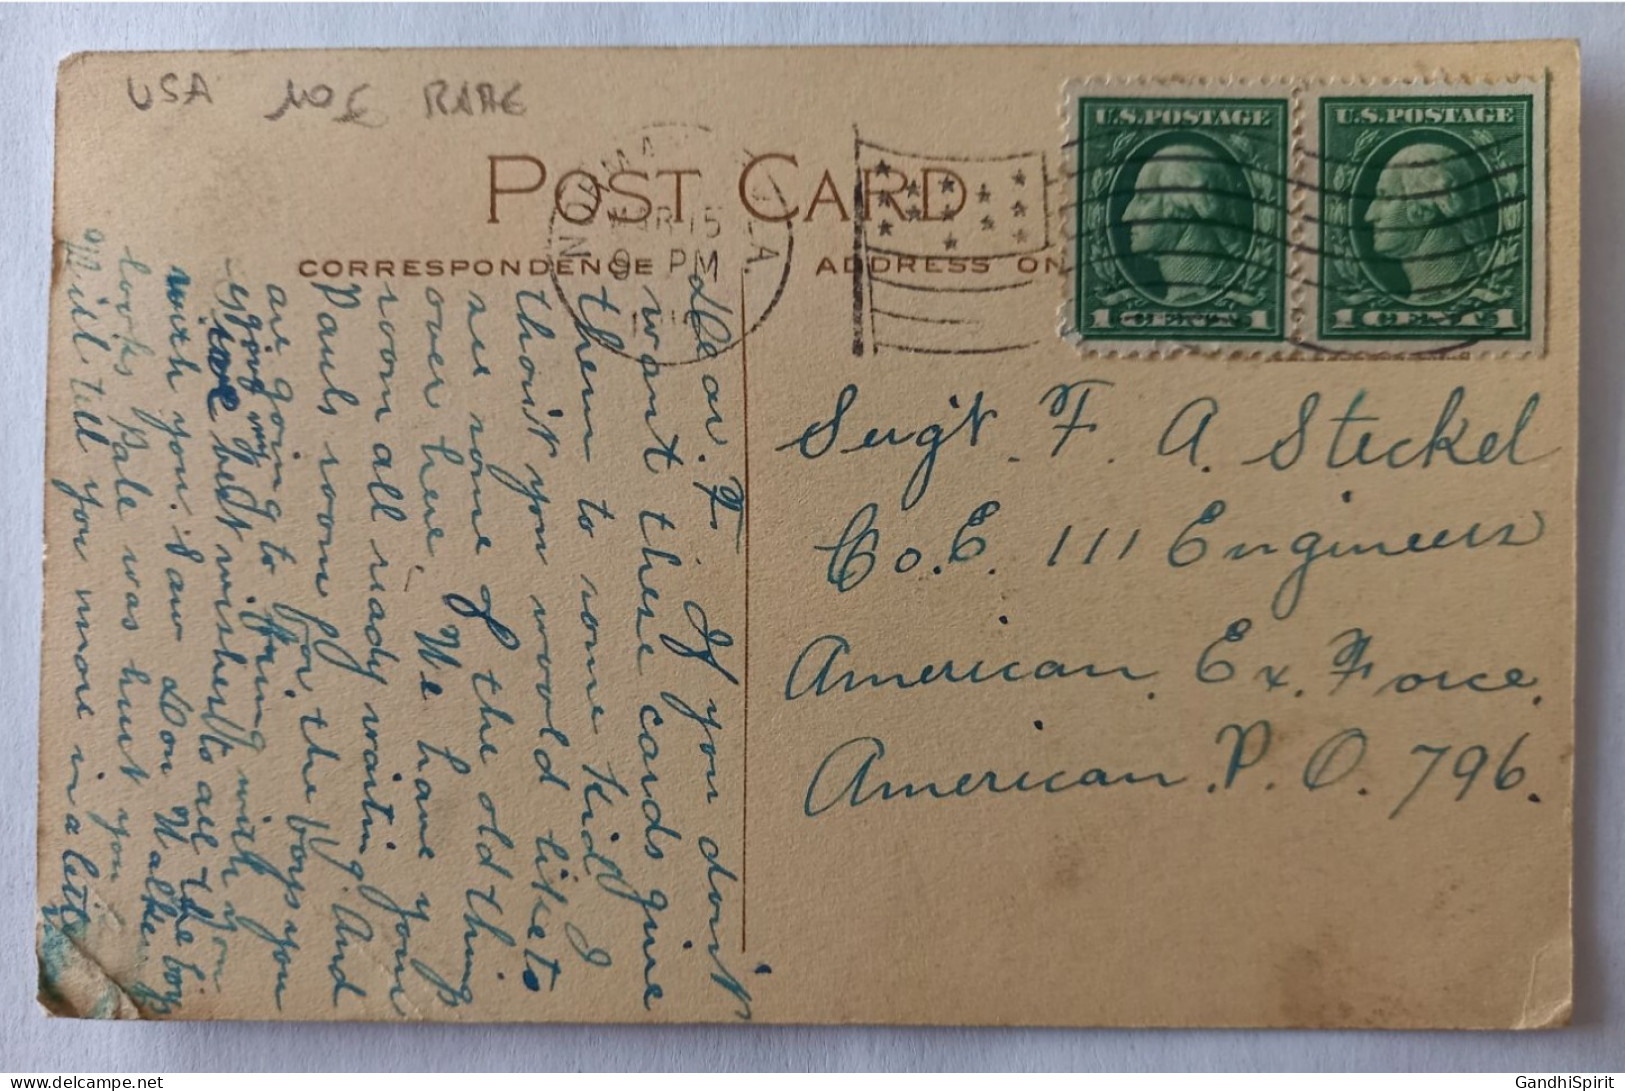 USA 10 € RARE
U.S. POSTAGE
U.S. POSTAGE
1 1
1 1
POST CARD
MAR 15
9 PM
CORRESPONDENCE
ADDRESS ON
Sergt. F. A. Steckel
Co. E. 111 Engineers
American. Ex. Force.
American. P. O. 796.
Dear. F. If you don't
want these cards give
them to some kid I
thout you woold like to
see some of the old things
over here. We have your
room all ready waiting. And
Pauls room for the boys you
are going to bring with you
give my
love best wishes to all the boys
with you. Saw Don Walker
looks Pale was hurt you
Will tell you more in a letter
GandhiSpirit